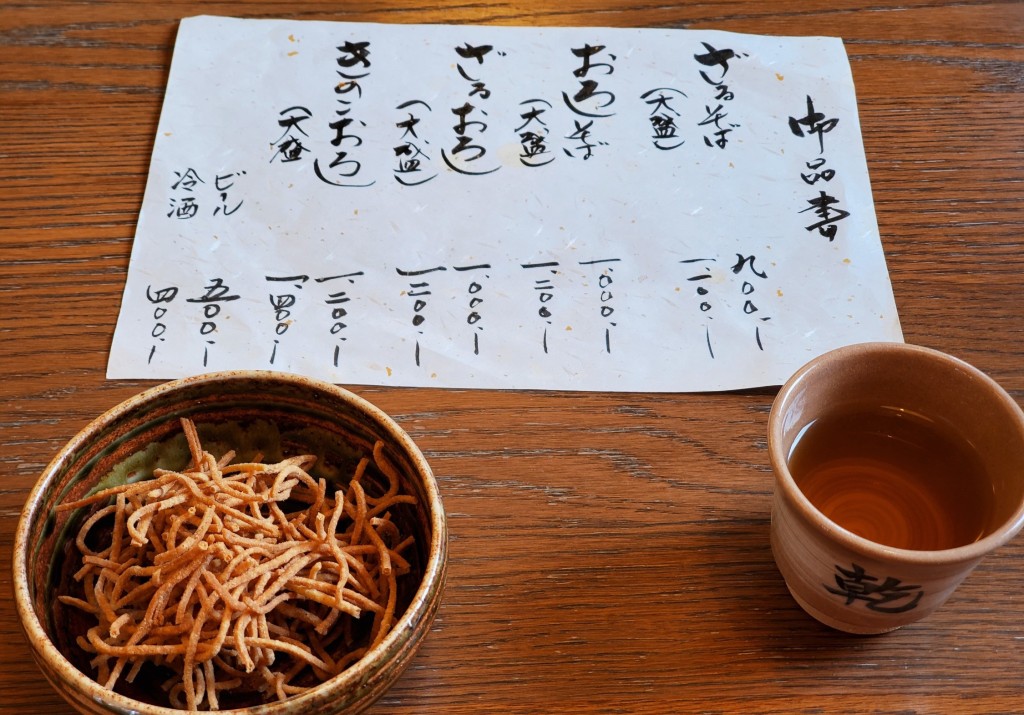 御品書
ざるそば 九〇〇.-
(大盛) 一.一〇〇.-
おろしそば 一.〇〇〇.-
(大盛) 一.二〇〇.-
ざるおろし 一.〇〇〇.-
(大盛) 一.二〇〇.-
きのこおろし 一.二〇〇.-
(大盛 一.四〇〇.-
ビール 五〇〇.-
冷酒 四〇〇.-
乾